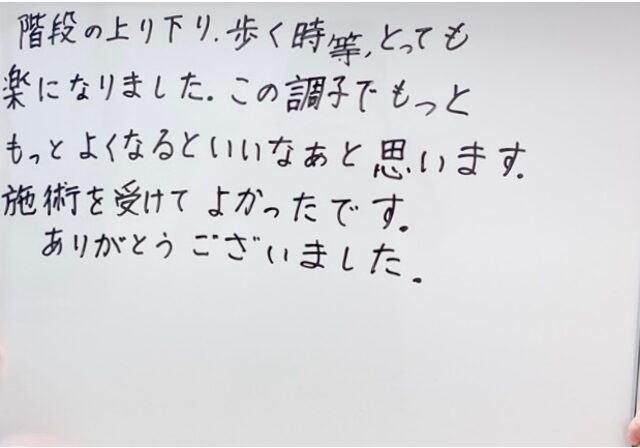 階段の上り下り.歩く時等,とっても
楽になりました.この調子でもっと
もっとよくなるといいなぁと思います.
施術を受けてよかったです。
ありがとうございました.